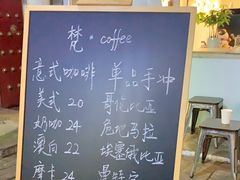 梵·coffee
意式咖啡 单品手冲
美式 20 哥伦比亚
奶咖 24 危地马拉
澳白 22 埃塞俄比亚
摩卡 24